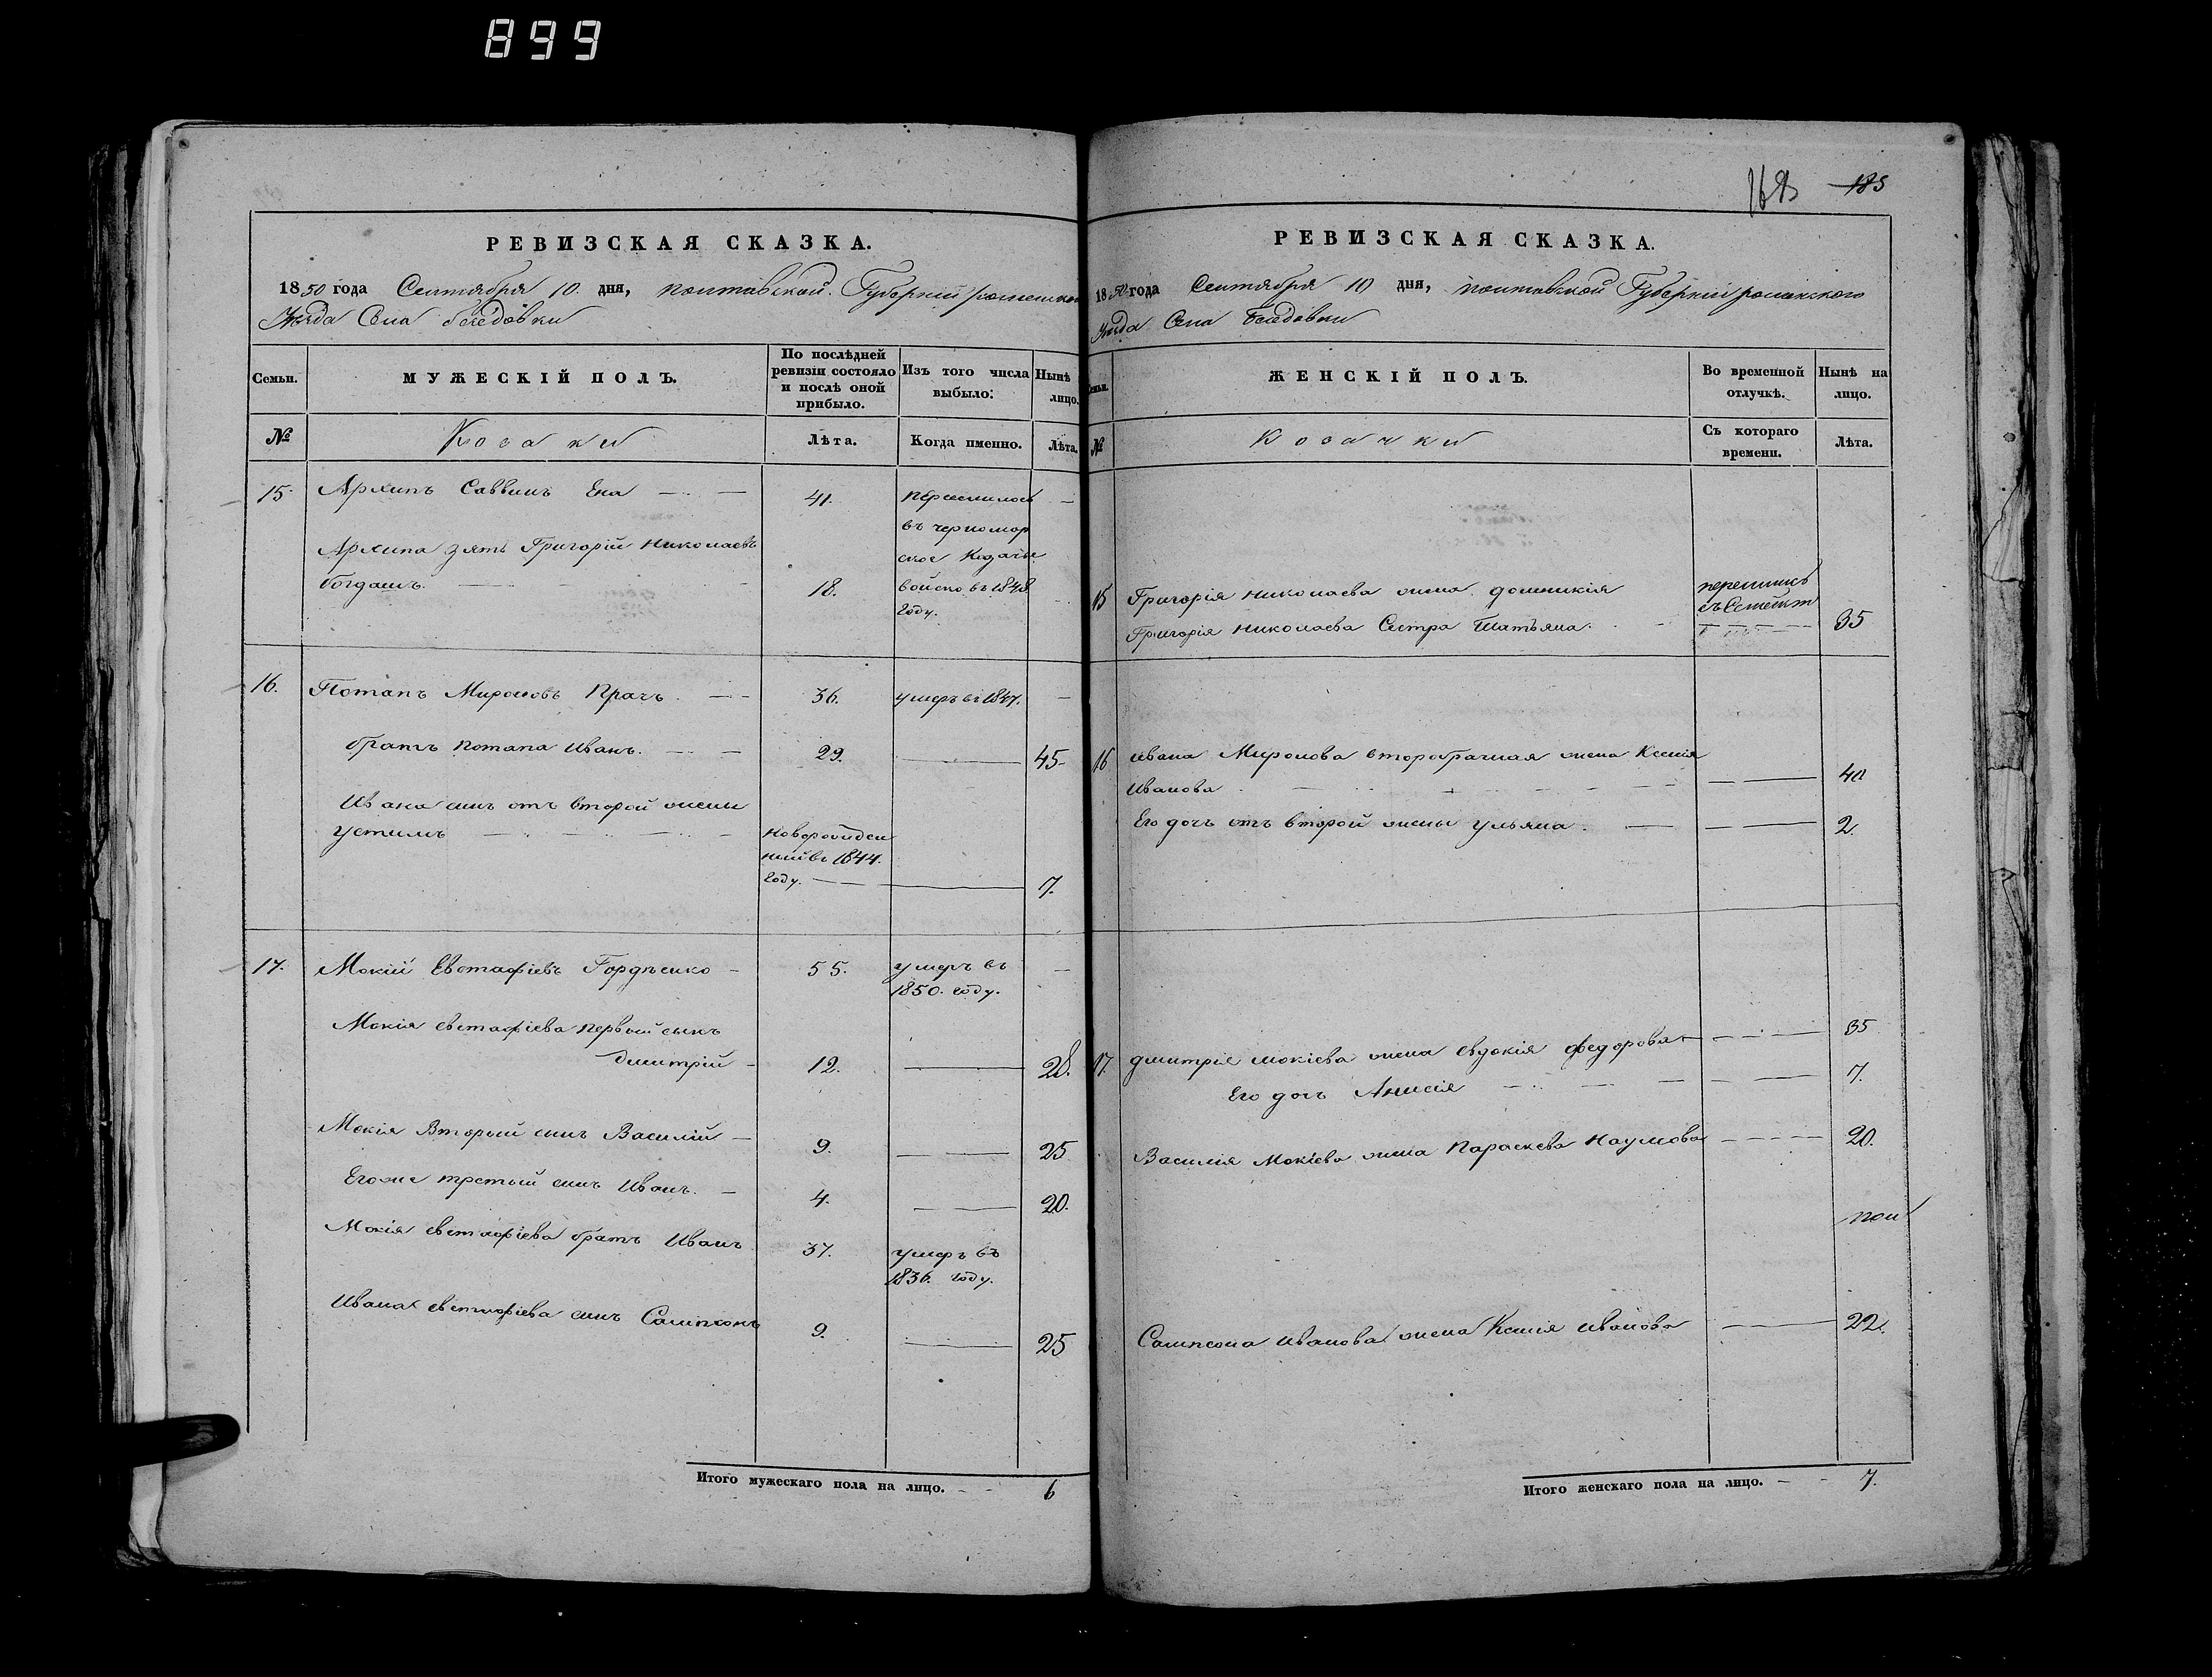 899
РЕВИЗСКАЯ СКАЗКА.
1850 года Сентября 10 дня, полтавской Губерніи роменского
Уезда Села беседовки
Семьи.
МУЖЕСКІЙ ПОЛЪ.
По послѣдней ревизіи состояло и послѣ оной прибыло.
Изъ того числа выбыло:
Нынѣ лицо.
№
Козаки
Лѣта.
Когда именно.
Лѣта.
15. Архипъ Саввинъ Ена — 41. переселилось —
въ черномор
Архипа зять Григорій Николаевъ ское Козачье
богдашъ. — 18. войско въ 1848
году.
16. Потапъ Мироновъ Прачъ. — 36. умеръ въ 1847. —
братъ потапа Иванъ. — 29. — 45
Ивана сынъ отъ второй жены
устимъ — новорожден
ный въ 1844.
году. — 7.
17. Мокій Евстафіевъ Гордѣенко — 55. умеръ въ —
1850. году.
Мокія евстафіева первый сынъ
дмитрій — 12. — 28.
Мокія Вторый сынъ Василій — 9. — 25
Егоже третый сынъ Иванъ. — 4. — 20.
Мокія евстафіева братъ Иванъ 37. умеръ въ
1836. году.
Ивана евстафіева сынъ Сампсонъ 9. — 25
Итого мужескаго пола на лицо. — 6
168 185
РЕВИЗСКАЯ СКАЗКА.
1850 года Сентября 10 дня, полтавской Губерніи роменского
Уезда Села беседовки
Семьи.
ЖЕНСКІЙ ПОЛЪ.
Во временной отлучкѣ.
Нынѣ на лицо.
№
Козачки
Съ котораго времени.
Лѣта.
15 Григорія николаева жена домникія
Григорія николаева Сестра Татьяна. — 35
16 ивана Миронова второбрачная жена Ксенія
Иванова — 40
Его дочь отъ второй жены ульяна. — 2.
17. дмитрія мокіева жена евдокія федорова — 35
Его дочь Анисія — 7.
Василія Мокіева жена Параскева Наумова — 20.
Сампсона иванова жена Ксенія иванова — 22.
Итого женскаго пола на лицо. — 7.